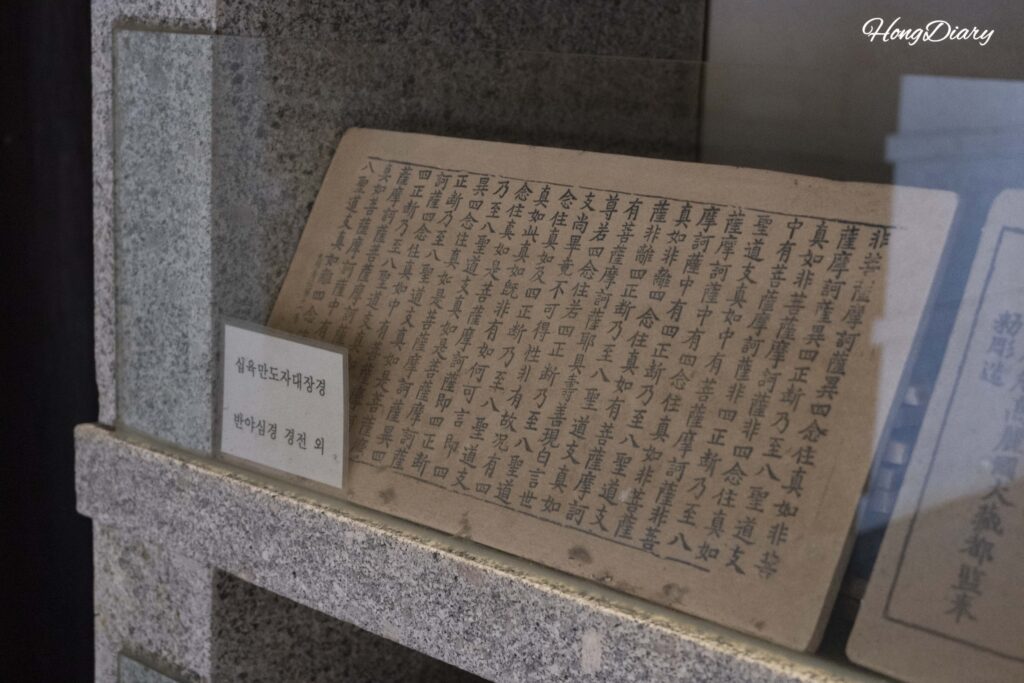 HongDiary
십육만도자대장경
반야심경 경전 외
非菩薩摩訶薩異四念住真如非菩
薩摩訶薩異四正斷乃至八聖道支
真如非菩薩摩訶薩非四念住真如
中有菩薩摩訶薩非四正斷乃至八
聖道支真如中有菩薩摩訶薩非菩
薩摩訶薩中有四念住真如非菩薩
摩訶薩中有四正斷乃至八聖道支
真如非離四念住真如有菩薩摩訶
薩非離四正斷乃至八聖道支真如
有菩薩摩訶薩耶具壽善現白言世
尊若四念住若四正斷乃至八聖道
支尚畢竟不可得性非有故況有四
念住真如及四正斷乃至八聖道支
真如此真如既非有如何可言即四
念住真如是菩薩摩訶薩即四正斷
乃至八聖道支真如是菩薩摩訶薩
異四念住真如是菩薩摩訶薩異四
正斷乃至八聖道支真如是菩薩摩
訶薩四念住真如中有菩薩摩訶薩
四正斷乃至八聖道支真如中有菩
薩摩訶薩
真如菩薩摩訶薩中
八聖道支真如離四念
國大藏都監奉
勅彫造